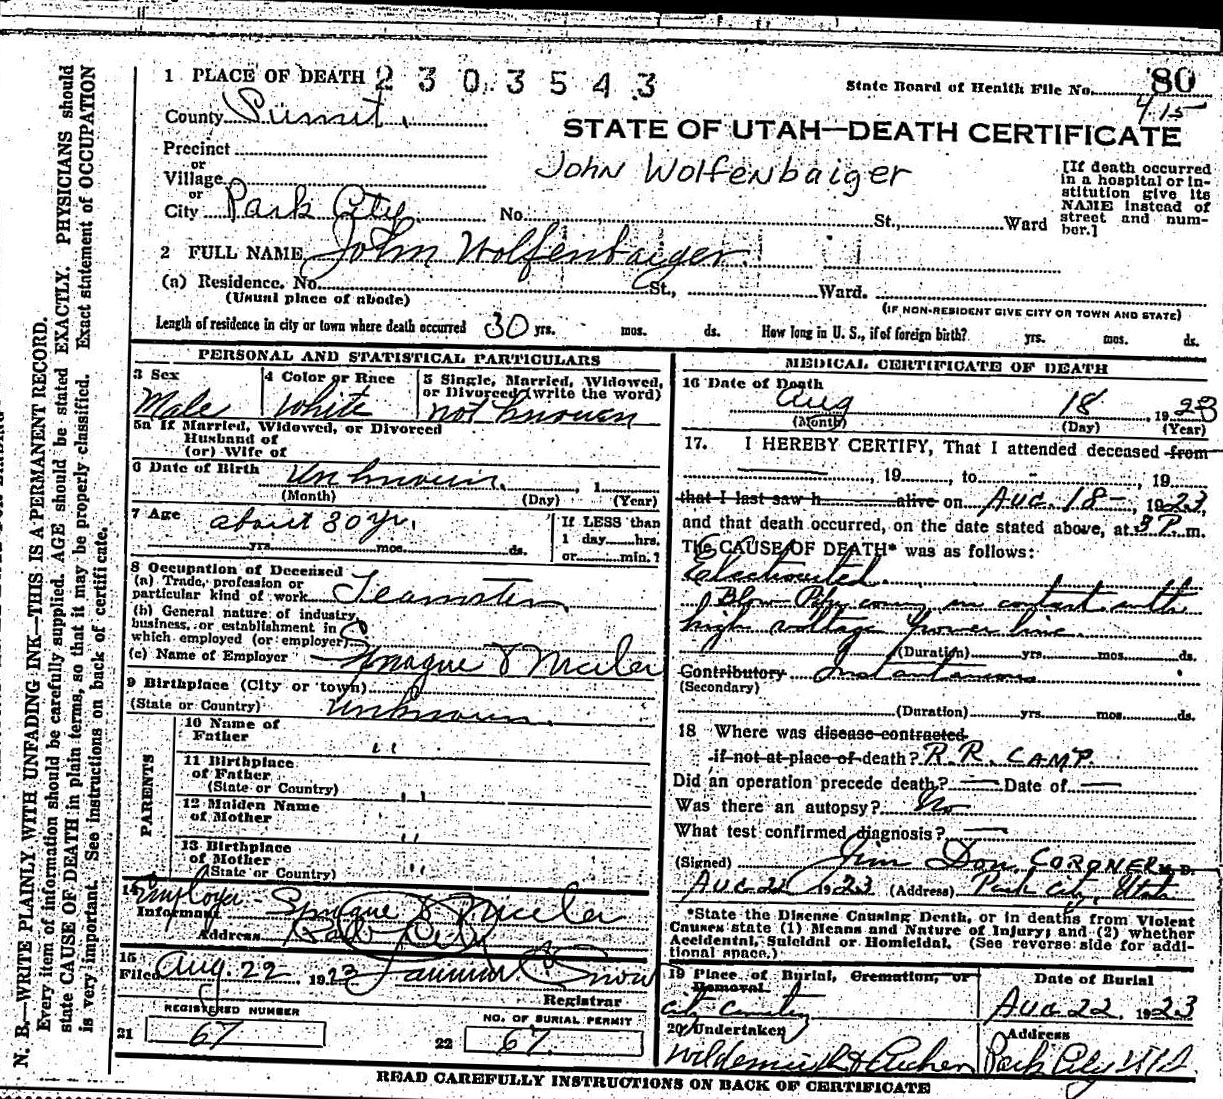 N. B.—WRITE PLAINLY WITH UNFADING INK—THIS IS A PERMANENT RECORD.
Every item of information should be carefully supplied. AGE should be stated EXACTLY. PHYSICIANS should
state CAUSE OF DEATH in plain terms, so that it may be properly classified. Exact statement of OCCUPATION
is very important. See instructions on back of certificate.
1 PLACE OF DEATH 2303543
State Board of Health File No. 80
415
County Summit.
STATE OF UTAH—DEATH CERTIFICATE
Precinct
or
John Wolfenbaiger
[If death occurred in a hospital or in-stitution give its NAME instead of street and num-ber.]
Village
or
City Park City No. St., Ward
2 FULL NAME John Wolfenbaiger
(a) Residence. No. St., Ward.
(Usual place of abode) (IF NON-RESIDENT GIVE CITY OR TOWN AND STATE)
Length of residence in city or town where death occurred 30 yrs. mos. ds. How long in U. S., if of foreign birth? yrs. mos. ds.
PERSONAL AND STATISTICAL PARTICULARS
3 Sex
Male
4 Color or Race
White
5 Single, Married, Widowed,
or Divorced (write the word)
not known
5a If Married, Widowed, or Divorced
Husband of
(or) Wife of
6 Date of Birth Unknown. , 1
(Month) (Day) (Year)
7 Age about 30 yr.
yrs. mos. ds.
If LESS than
1 day hrs.
or min.?
8 Occupation of Deceased
(a) Trade, profession or
particular kind of work Teamster
(b) General nature of industry,
business, or establishment in
which employed (or employer)
(c) Name of Employer Sprague &
9 Birthplace (City or town)
(State or Country) unknown.
PARENTS
10 Name of
Father "
11 Birthplace
of Father
(State or Country) "
12 Maiden Name
of Mother "
13 Birthplace
of Mother
(State or Country) "
14 Employer
Informant Sprague &
Address Park City
15
Filed Aug. 22 1923 Snow
Registrar
REGISTERED NUMBER
21 67
NO. OF BURIAL PERMIT
22 67
MEDICAL CERTIFICATE OF DEATH
16 Date of Death
Aug 18 , 1923
(Month) (Day) (Year)
17. I HEREBY CERTIFY, That I attended deceased from
, 19 , to , 19
that I last saw h alive on Aug. 18- , 1923,
and that death occurred, on the date stated above, at 3 P. m.
The CAUSE OF DEATH* was as follows:
Electrocuted.
Blow Pipe coming in contact with
high voltage power line.
(Duration) yrs. mos. ds.
Contributory Instantaneous
(Secondary)
(Duration) yrs. mos. ds.
18 Where was disease contracted
if not at place of death? R.R. CAMP.
Did an operation precede death? — Date of —
Was there an autopsy? No
What test confirmed diagnosis? —
(Signed) Jim Don CORONER M. D.
Aug 22 1923 (Address) Park City, Utah
*State the Disease Causing Death, or in deaths from Violent
Causes state (1) Means and Nature of Injury; and (2) whether
Accidental, Suicidal or Homicidal. (See reverse side for addi-
tional space.)
19 Place of Burial, Cremation, or
Removal
City Cemetery
Date of Burial
Aug 22. 1923
20 Undertaker
Address
Park City Utah
READ CAREFULLY INSTRUCTIONS ON BACK OF CERTIFICATE